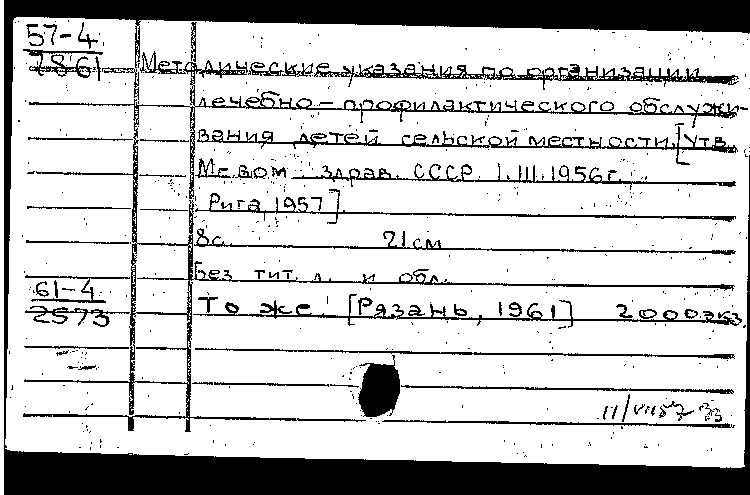 57-4
7861 Методические указания по организации
лечебно-профилактического обслужи-
вания детей сельской местности. [Утв.
М-вом здрав. СССР 1.III.1956г.
Рига, 1957].
8с. 21см
Без тит. л. и обл.
61-4
2573 То же [Рязань, 1961] 2000экз.
11/VII57